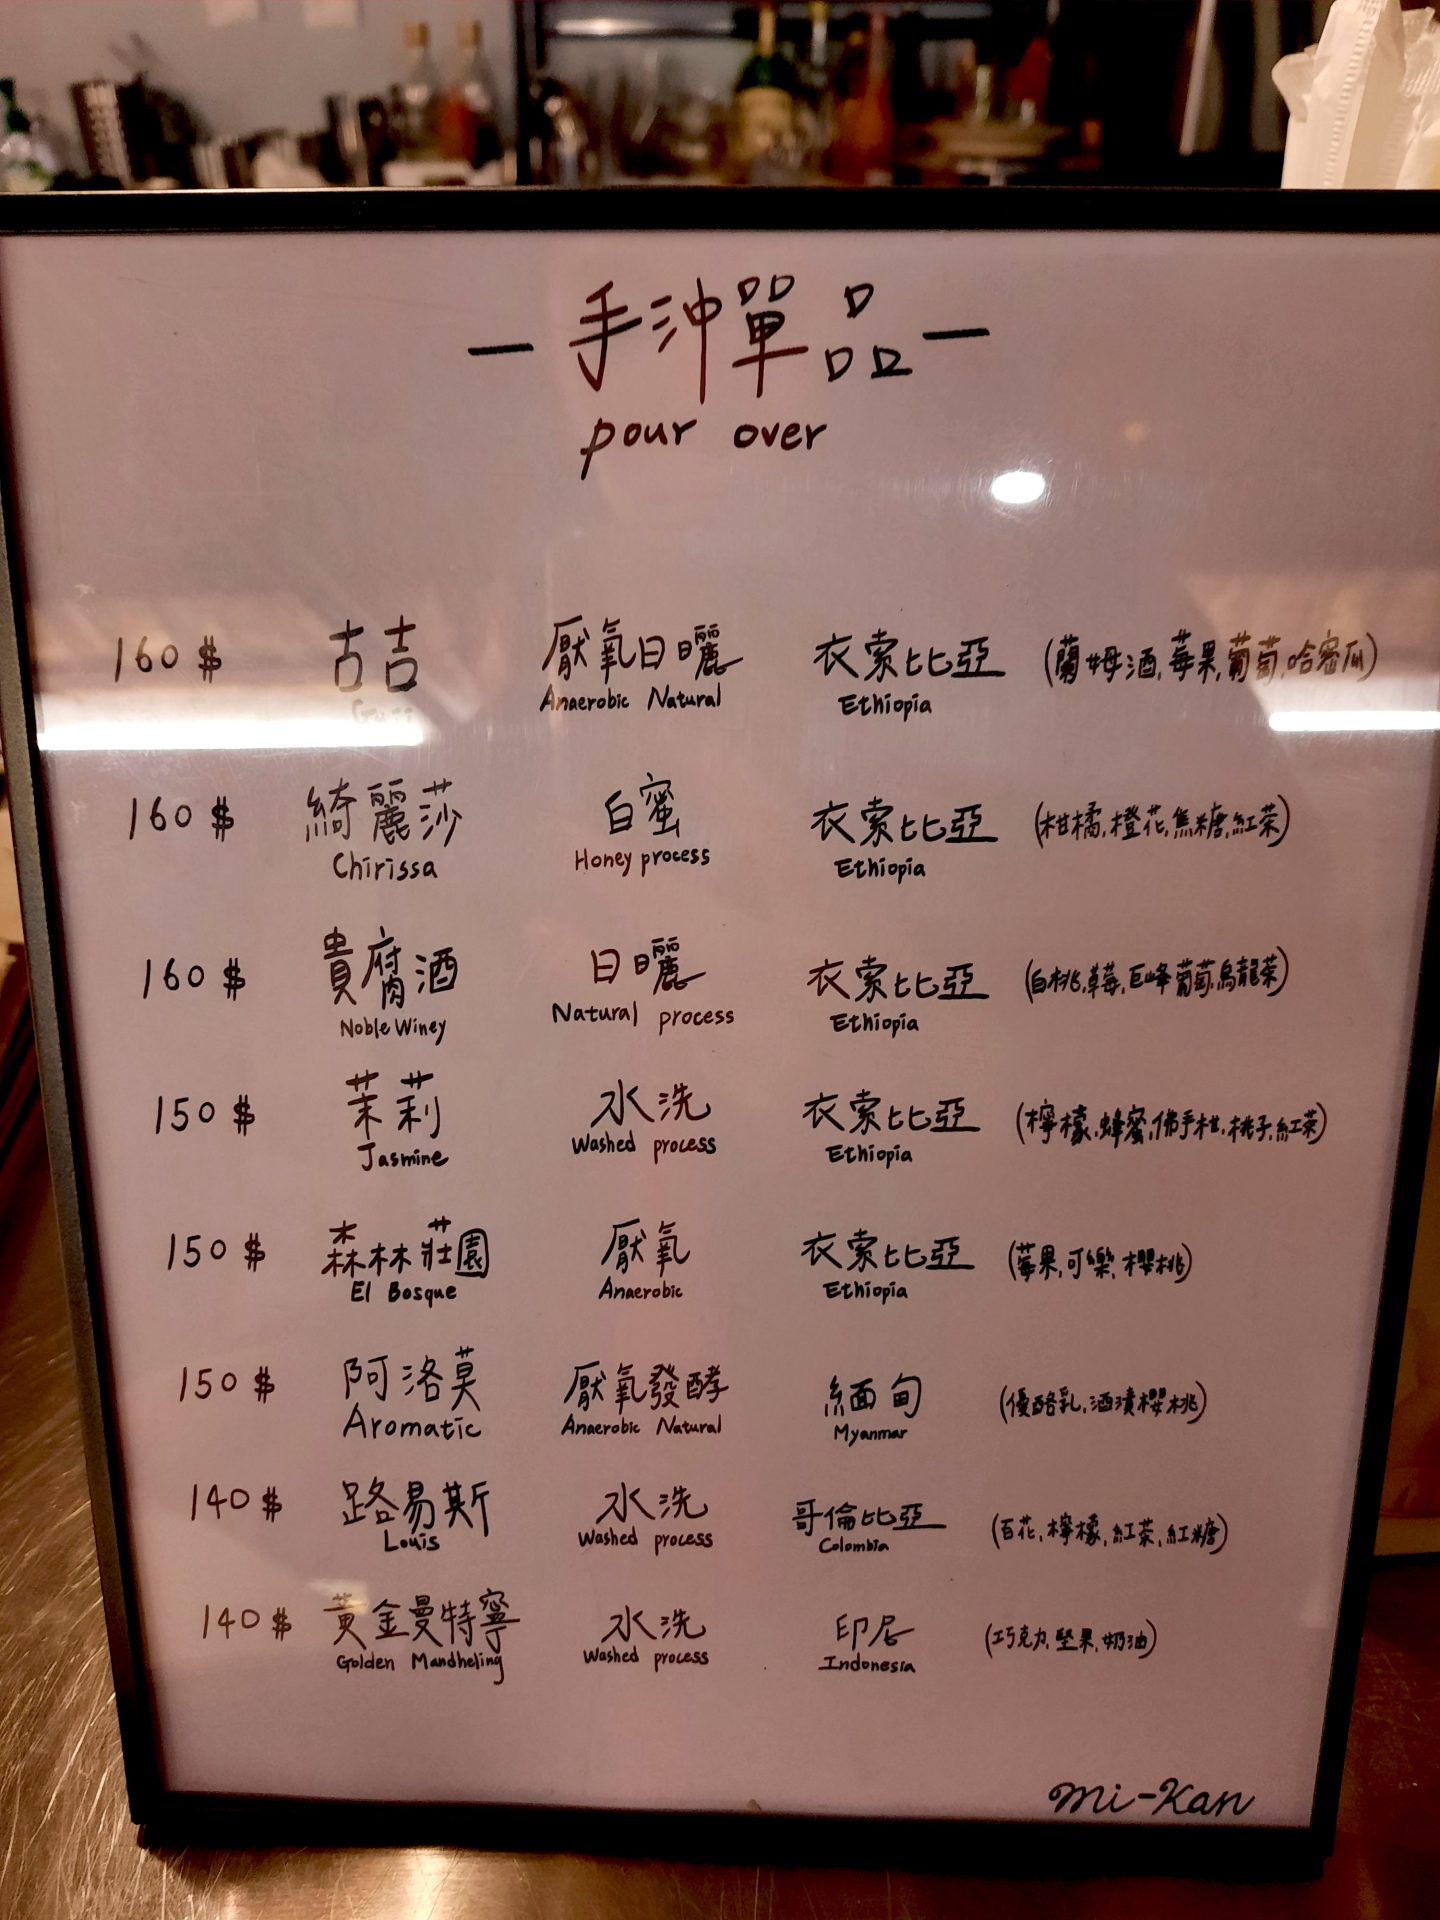 - 手沖單品 -
pour over
160 $ 古吉 厭氧日曬 衣索比亞 (蘭姆酒,莓果,葡萄,哈密瓜)
Guji Anaerobic Natural Ethiopia
160 $ 綺麗莎 白蜜 衣索比亞 (柑橘,橙花,焦糖,紅茶)
Chirissa Honey process Ethiopia
160 $ 貴腐酒 日曬 衣索比亞 (白桃,草莓,巨峰葡萄,烏龍茶)
Noble Winey Natural process Ethiopia
150 $ 茉莉 水洗 衣索比亞 (檸檬,蜂蜜,佛手柑,桃子,紅茶)
Jasmine Washed process Ethiopia
150 $ 森林莊園 厭氧 衣索比亞 (莓果,可樂,櫻桃)
El Bosque Anaerobic Ethiopia
150 $ 阿洛莫 厭氧發酵 緬甸 (優酪乳,酒漬櫻桃)
Aromatic Anaerobic Natural Myanmar
140 $ 路易斯 水洗 哥倫比亞 (百花,檸檬,紅茶,紅糖)
Louis Washed process Colombia
140 $ 黃金曼特寧 水洗 印尼 (巧克力,堅果,奶油)
Golden Mandheling Washed process Indonesia
Mi-Kan